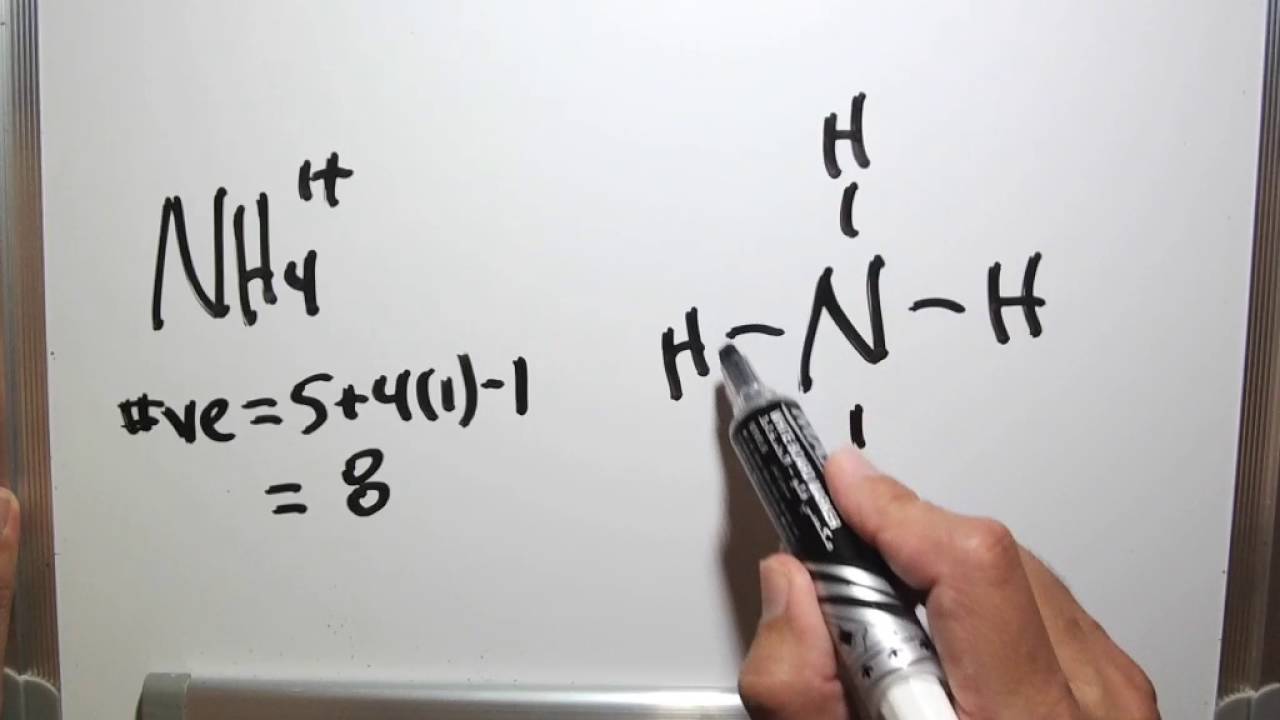 NH4 1+
#ve = 5+4(1)-1
= 8
H
H - N - H